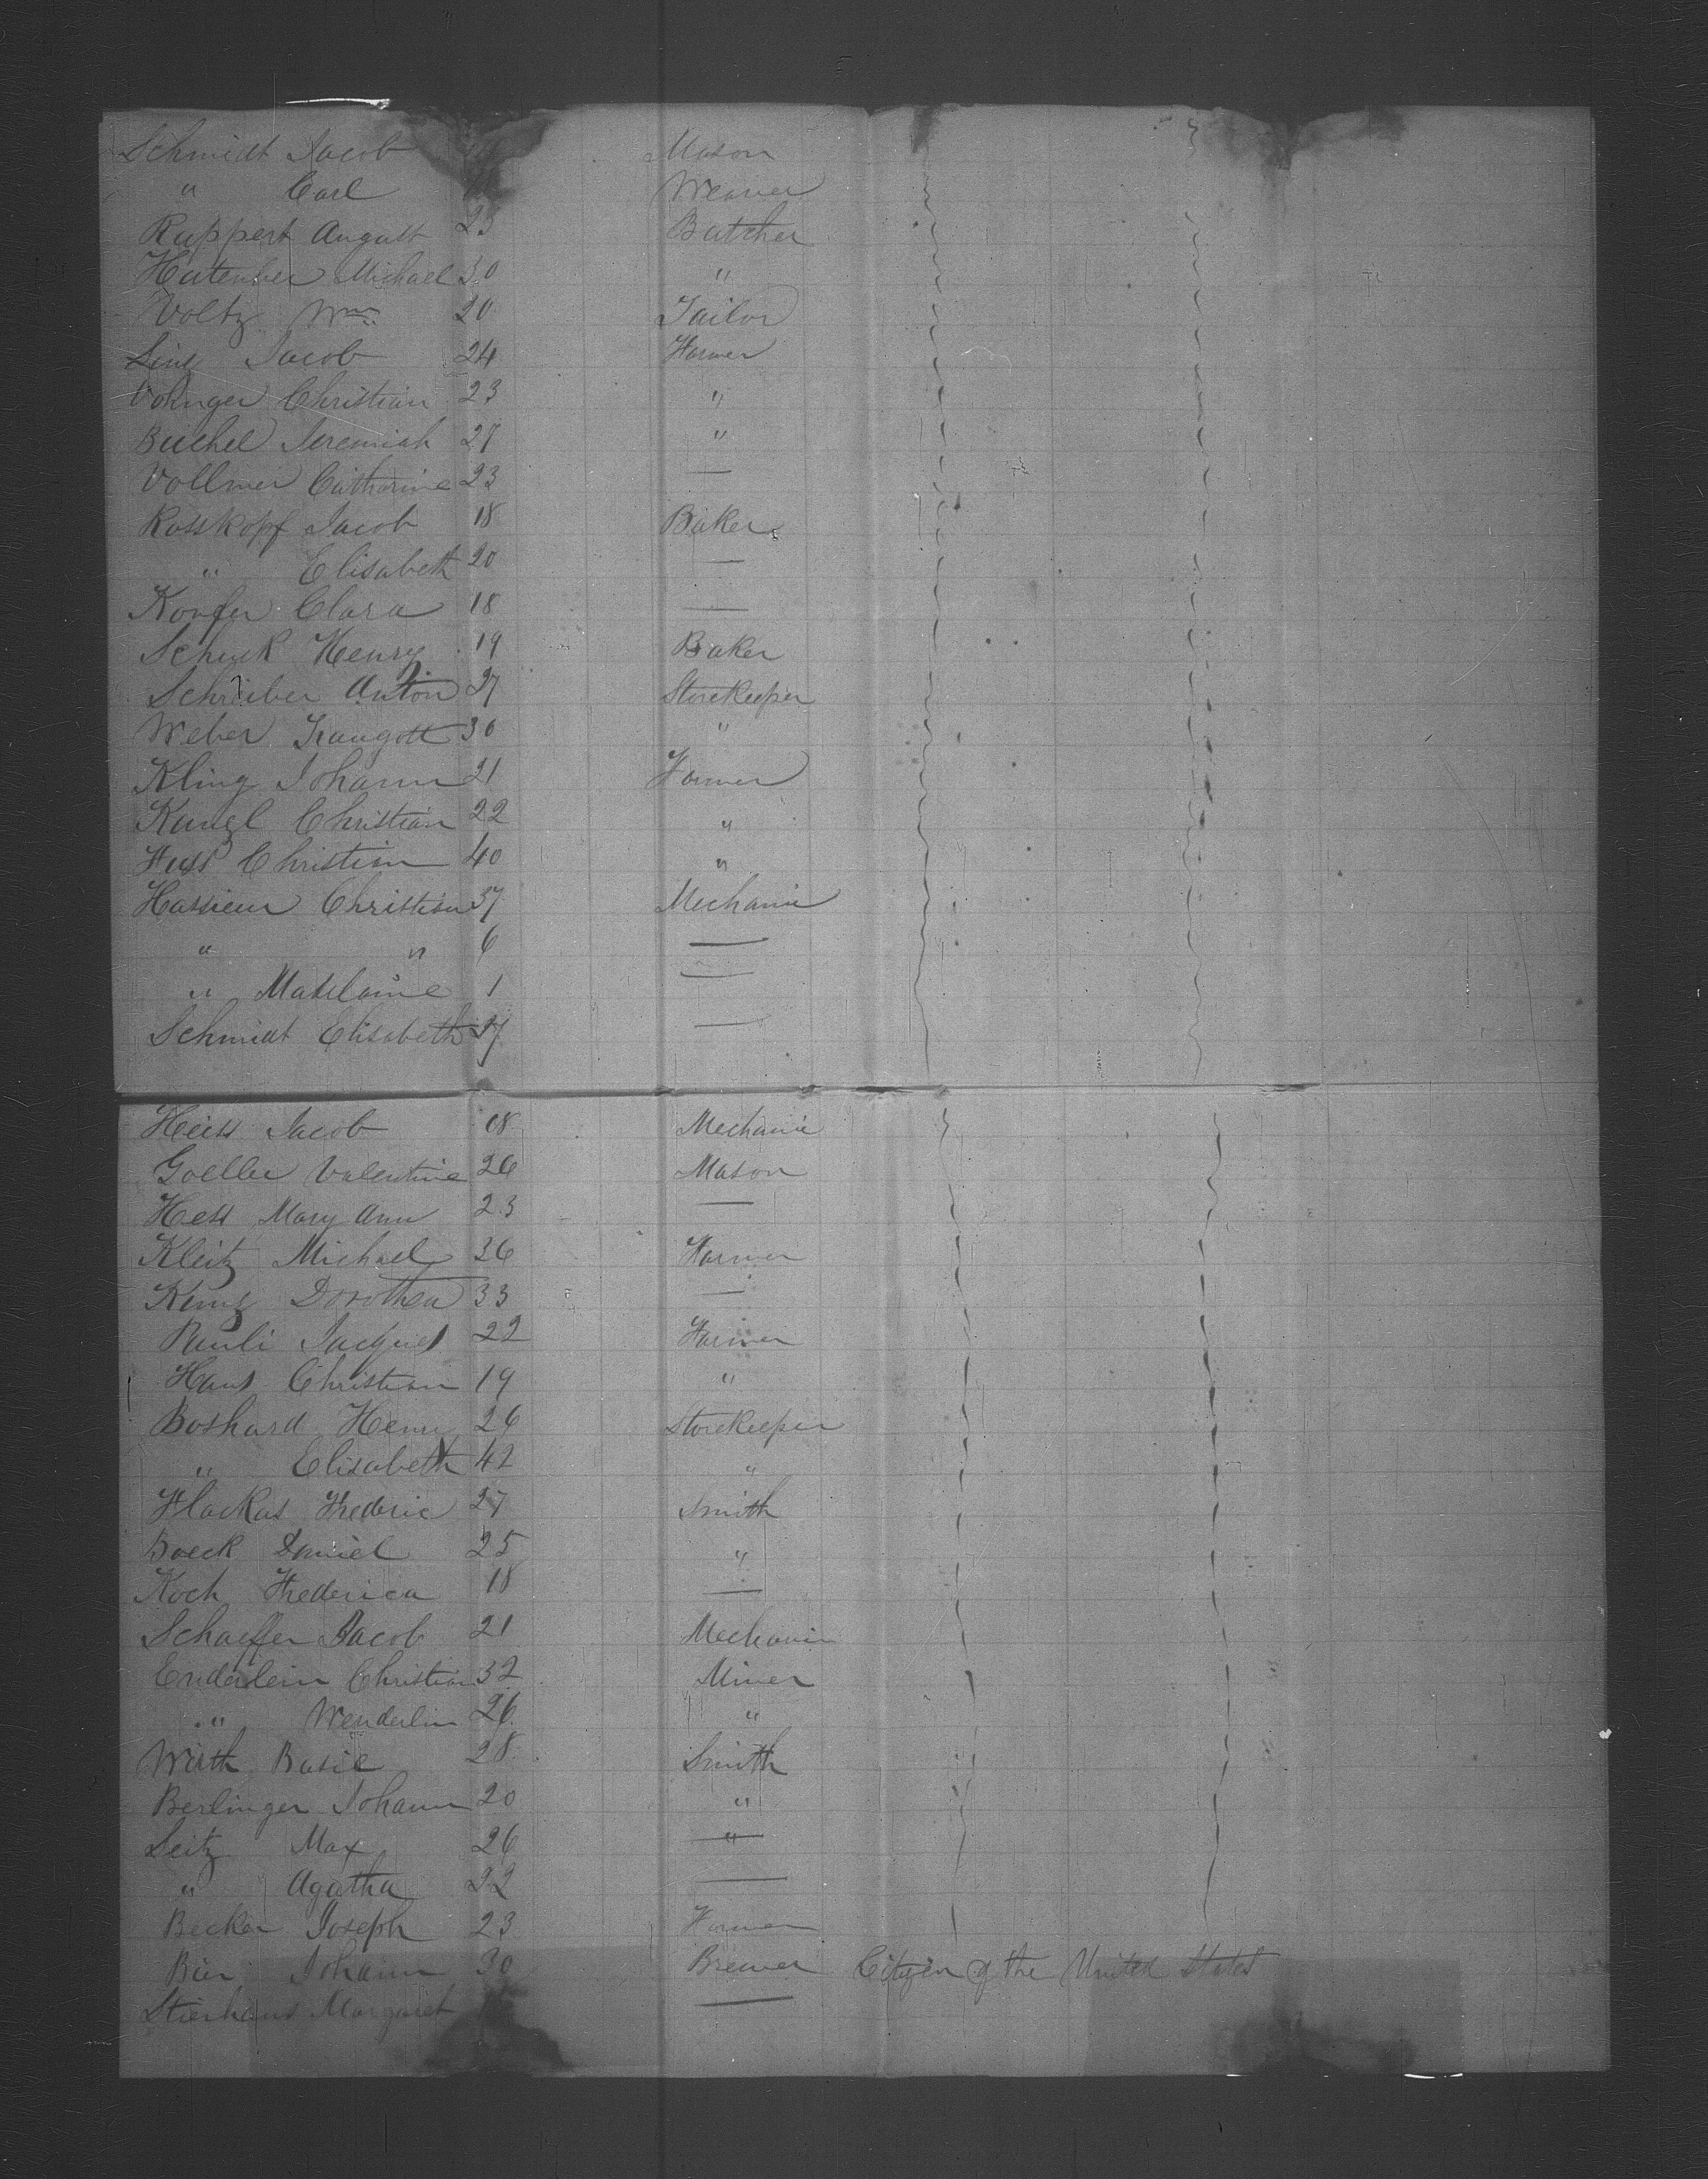 Schmidt Jacob Mason
" Carl Weaver
Ruppert August 23 Butcher
Hutenber Michael 30 "
Voltz Wm 20 Tailor
Jacob 24 Farmer
Christian 23 "
Buchel Jeremiah 27 "
Vollmer Catharine 23 —
Rosskopf Jacob 18 Baker
" Elisabeth 20 —
Clara 18 —
Schuck Henry 19 Baker
Schreiber Anton 27 Storekeeper
Weber Traugott 30 "
Kling Johann 21 Farmer
Kungl Christian 22 "
Fuss Christian 40 "
Christian 37 Mechanic
" " 6 —
" Madelaine 1 —
Schmidt Elisabeth —
Heiss Jacob 18 Mechanic
Goeller Valentine 26 Mason
Hess Mary Ann 23 —
Kleitz Michael 36 Farmer
Dorothea 33 —
Pauli Jacques 22 Farmer
Haus Christian 19 "
Boshard Henry 26 Storekeeper
" Elisabeth 42 "
Flackus Frederic 27 Smith
Boeck Daniel 25 "
Koch Frederica 18 —
Schaeffer Jacob 21 Mechanic
Enderlein Christian 32 Miner
" Wenderlin 26 "
Wirth Basil 28 Smith
Berlinger Johann 20 "
Seitz Max 26 "
" Agatha 22 —
Becker Joseph 23 Farmer
Johann 30 Brewer Citizen of the United States
Margaret —